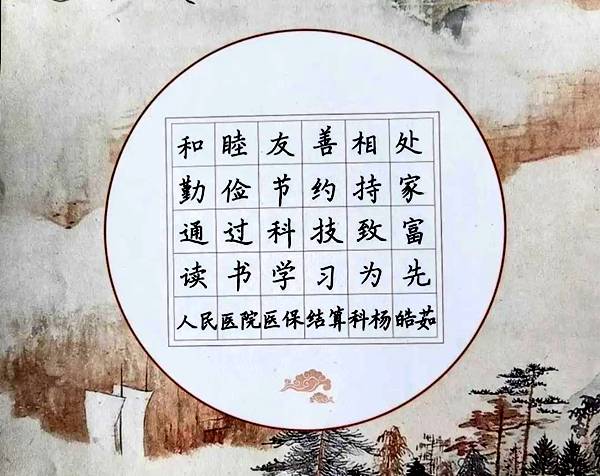 和睦友善相处
勤俭节约持家
通过科技致富
读书学习为先
人民医院医保结算科杨皓茹